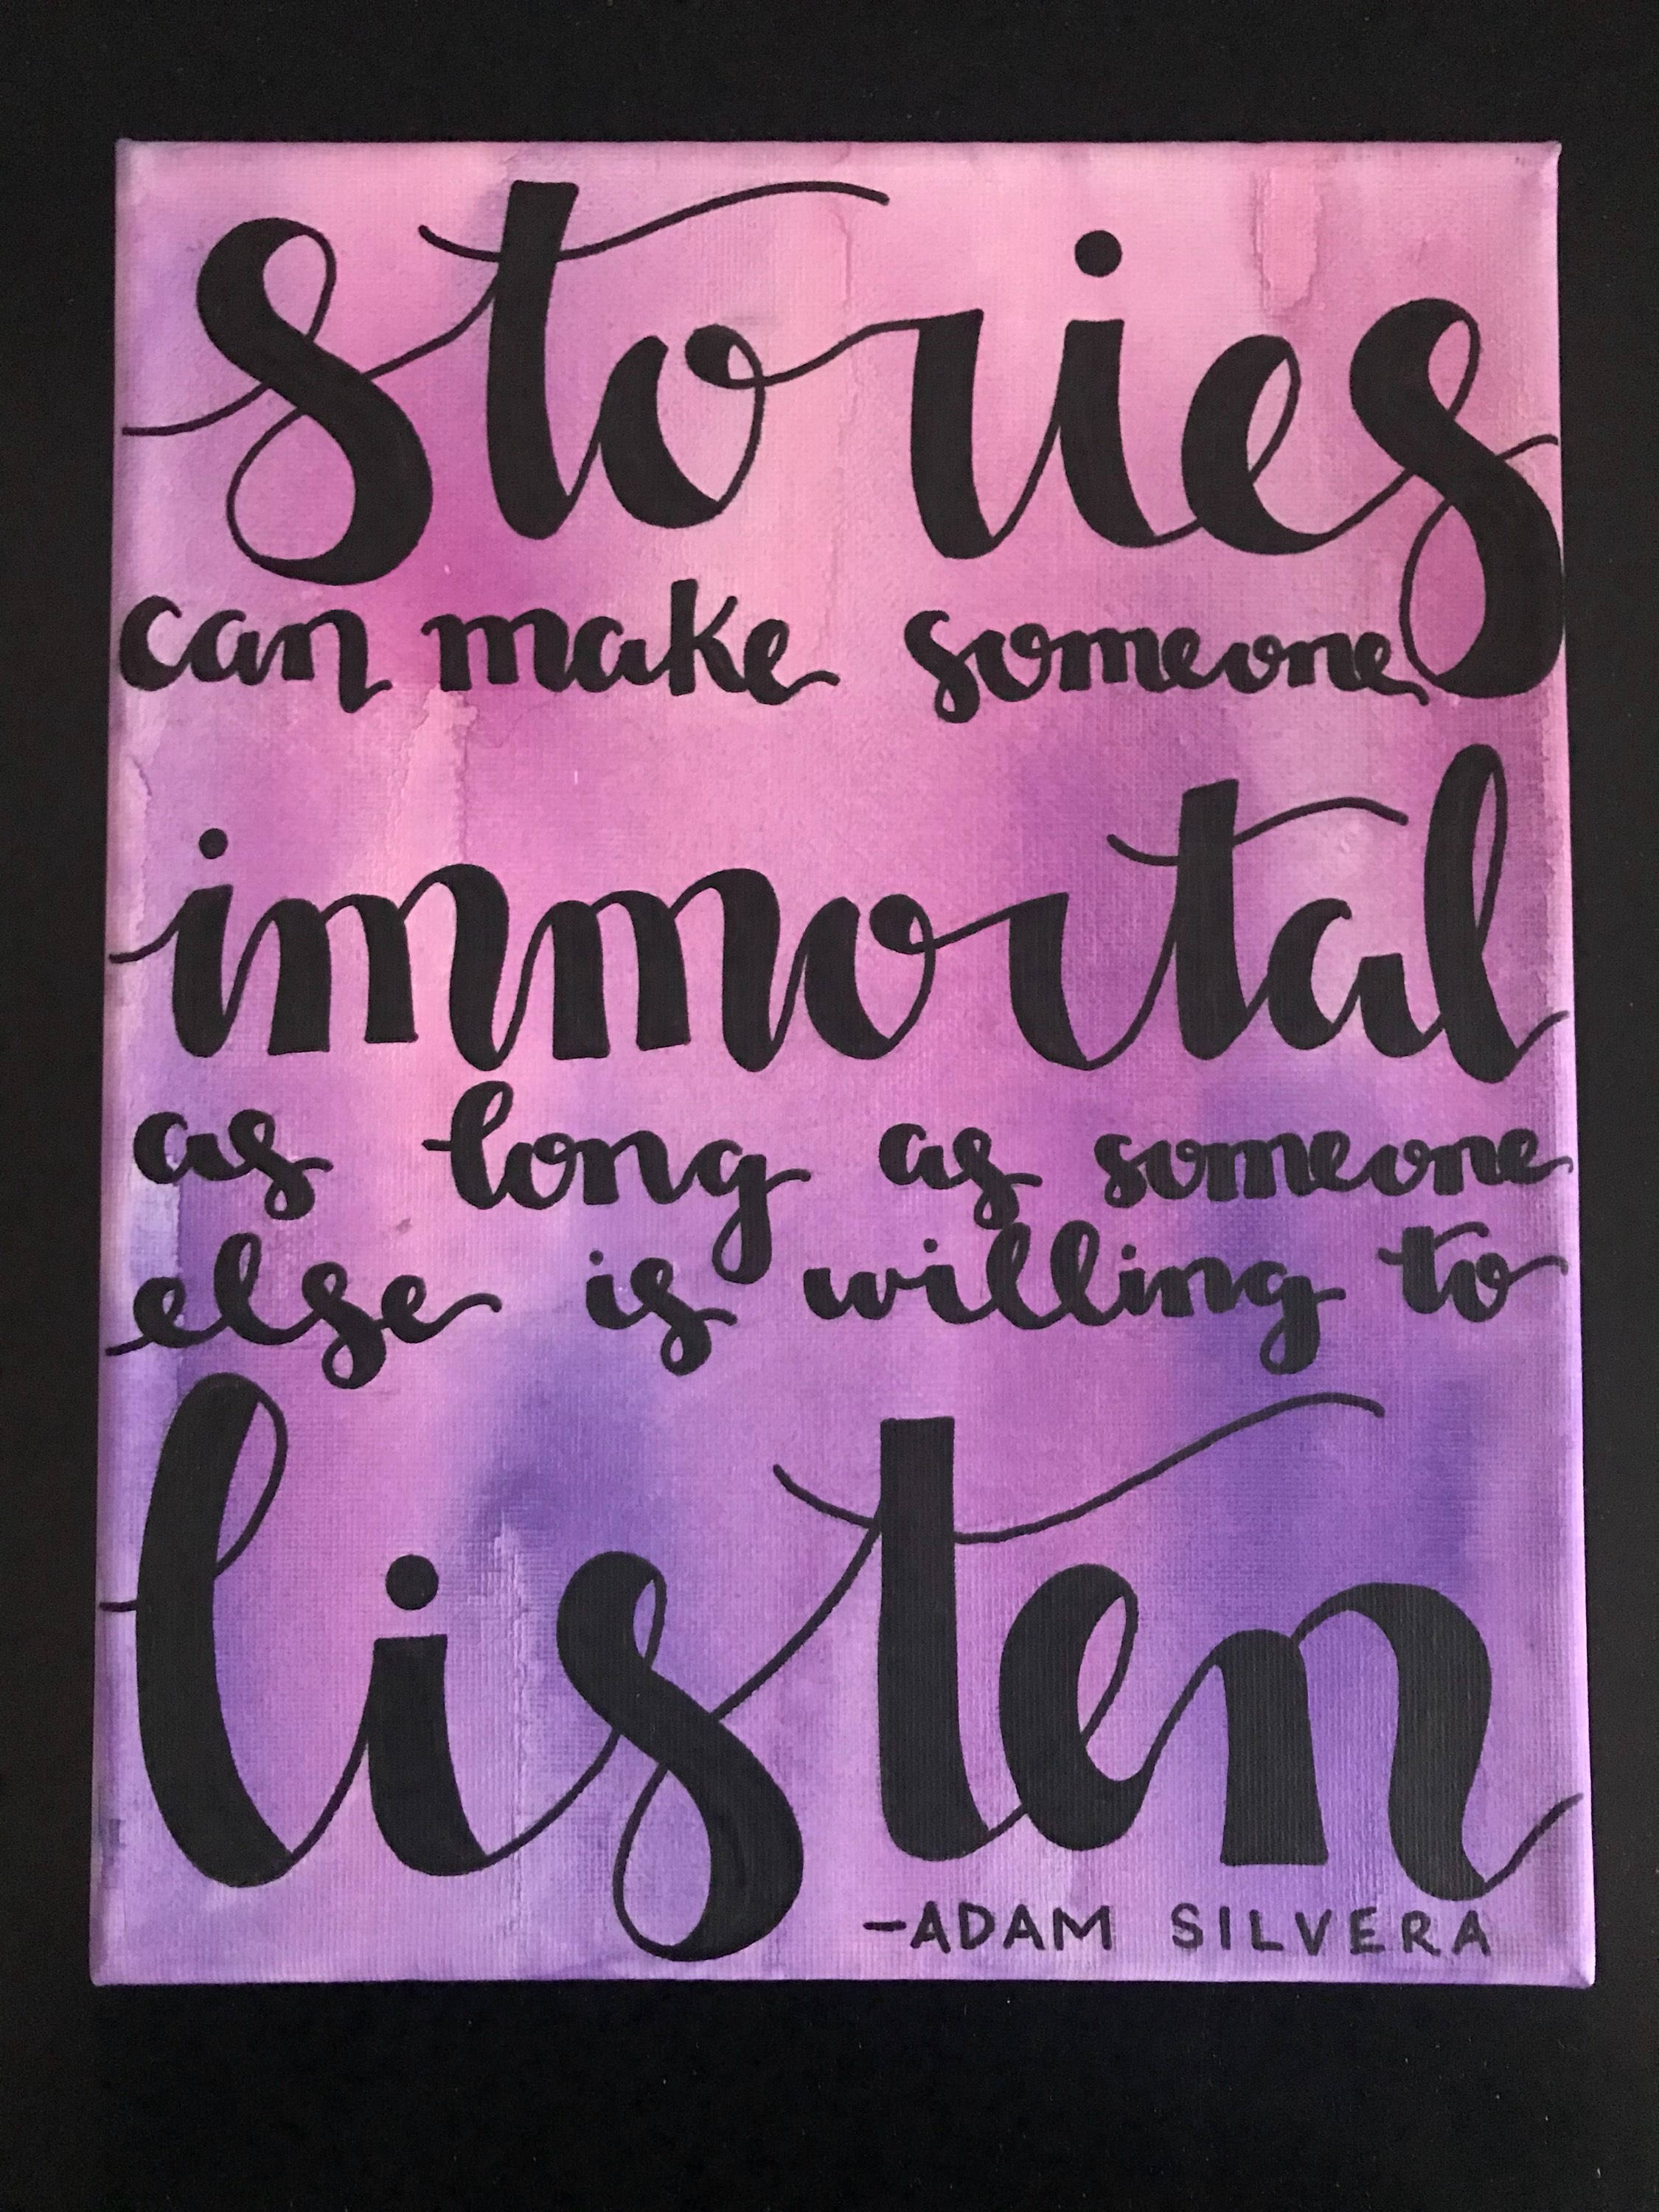 stories
can make someone
immortal
as long as someone
else is willing to
listen
-ADAM SILVERA